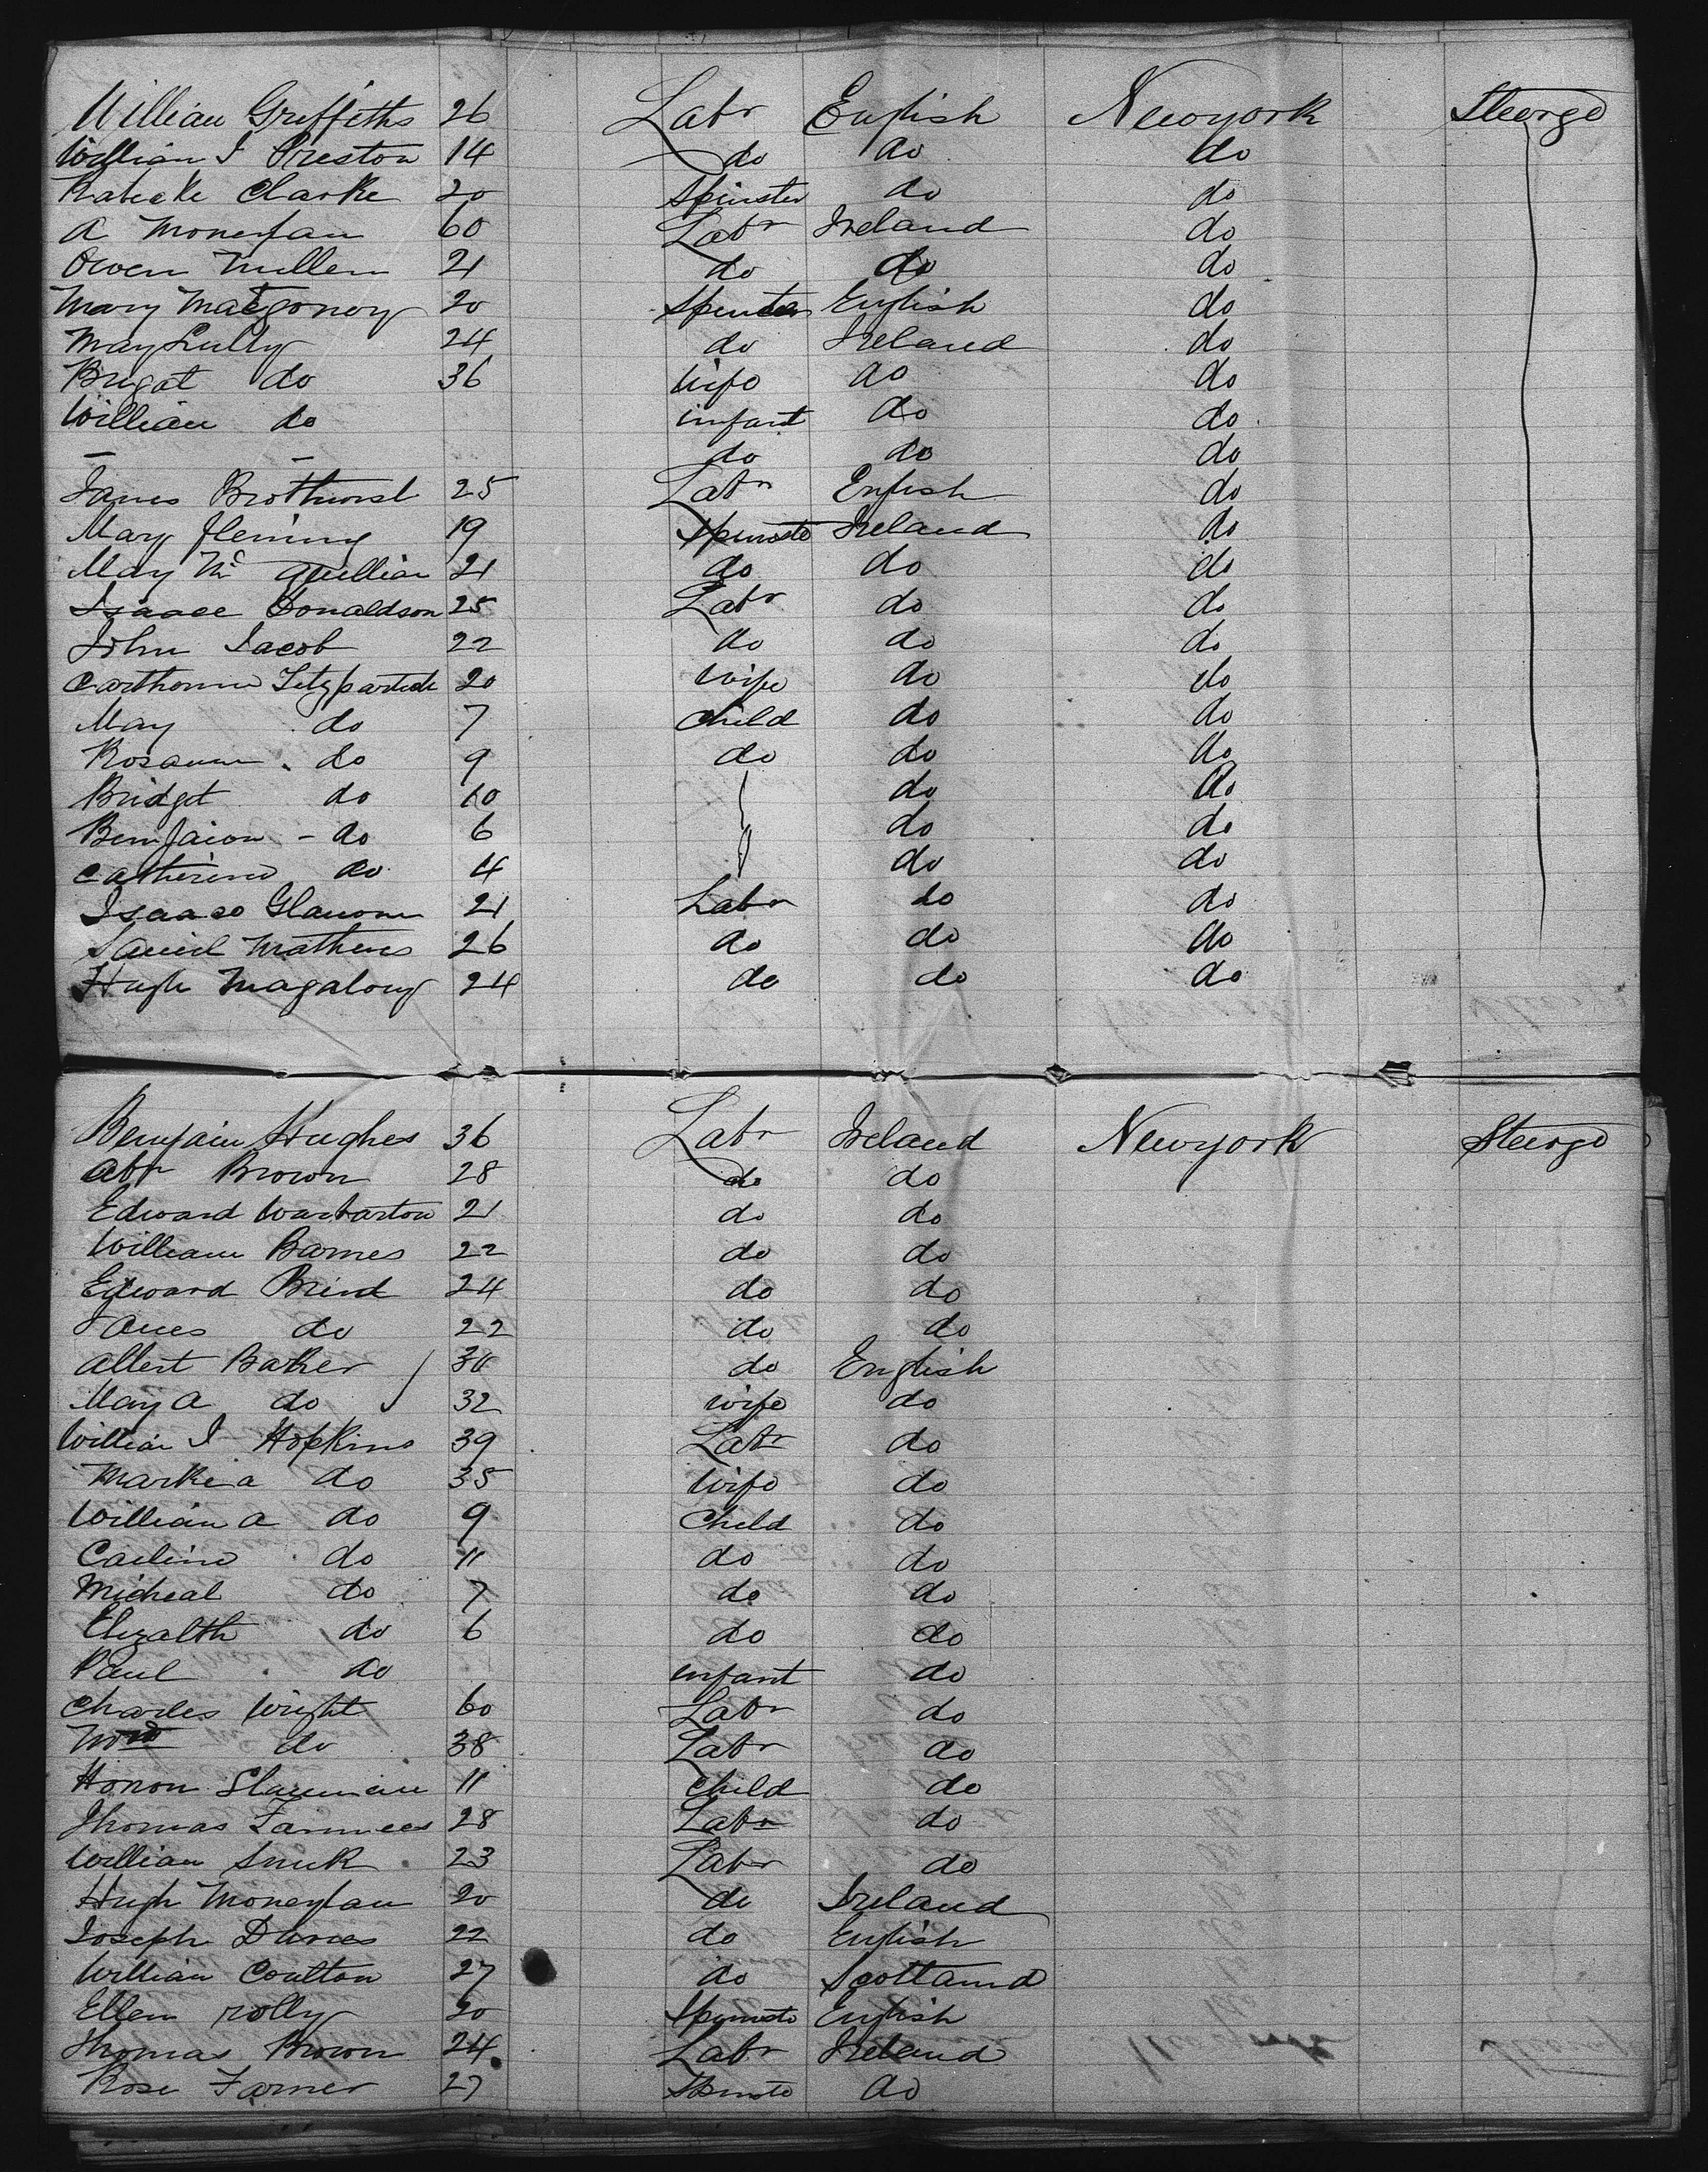 William Griffiths 26 Labr English Newyork Steerge
William J Preston 14 do do do
Rabecke Clarke 20 Spinster do do
A Moneypan 60 Labr Ireland do
Owen Mullen 21 do do do
Mary Matgomory 20 Spinster English do
May Lully 24 do Ireland do
Brigat do 36 wife do do
William do infant do do
— — do do do
James Brothurst 25 Labr English do
Mary Fleming 19 Spinste Ireland do
May Mc Quillian 21 do do do
Isaace Donaldson 25 Labr do do
John Jacob 22 do do do
Carthorine Fitzpartick 20 wife do do
May do 7 child do do
Rosanna do 9 do do do
Bridget do 10 do do
Benjaion - do 6 do do
Catherine do 4 do do
Isaaco 21 Labr do do
Mathews 26 do do do
Hugh Magalong 24 do do do
Benjain Hughes 36 Labr Ireland Newyork Steerge
Abr Brown 28 do do
Edward Warbarton 21 do do
William Barnes 22 do do
Edward Brind 24 do do
James do 22 do do
Albert Baker 30 do English
May A do 32 wife do
William J Hopkins 39 Labr do
Markia do 35 wife do
William A do 9 Child do
Carline do 11 do do
Micheal do 7 do do
Elizalth do 6 do do
Paul do infant do
Charles Wright 60 Labr do
do 38 Labr do
Honon 11 Child do
Thomas 28 Labr do
William 23 Labr do
Hugh Moneypan 20 do Ireland
Joseph Davies 22 do English
William Coulton 27 do Scotland
Ellen rolly 20 Spinste English
Thomas Brown 24 Labr Ireland
Rose Farner 27 Spinste do